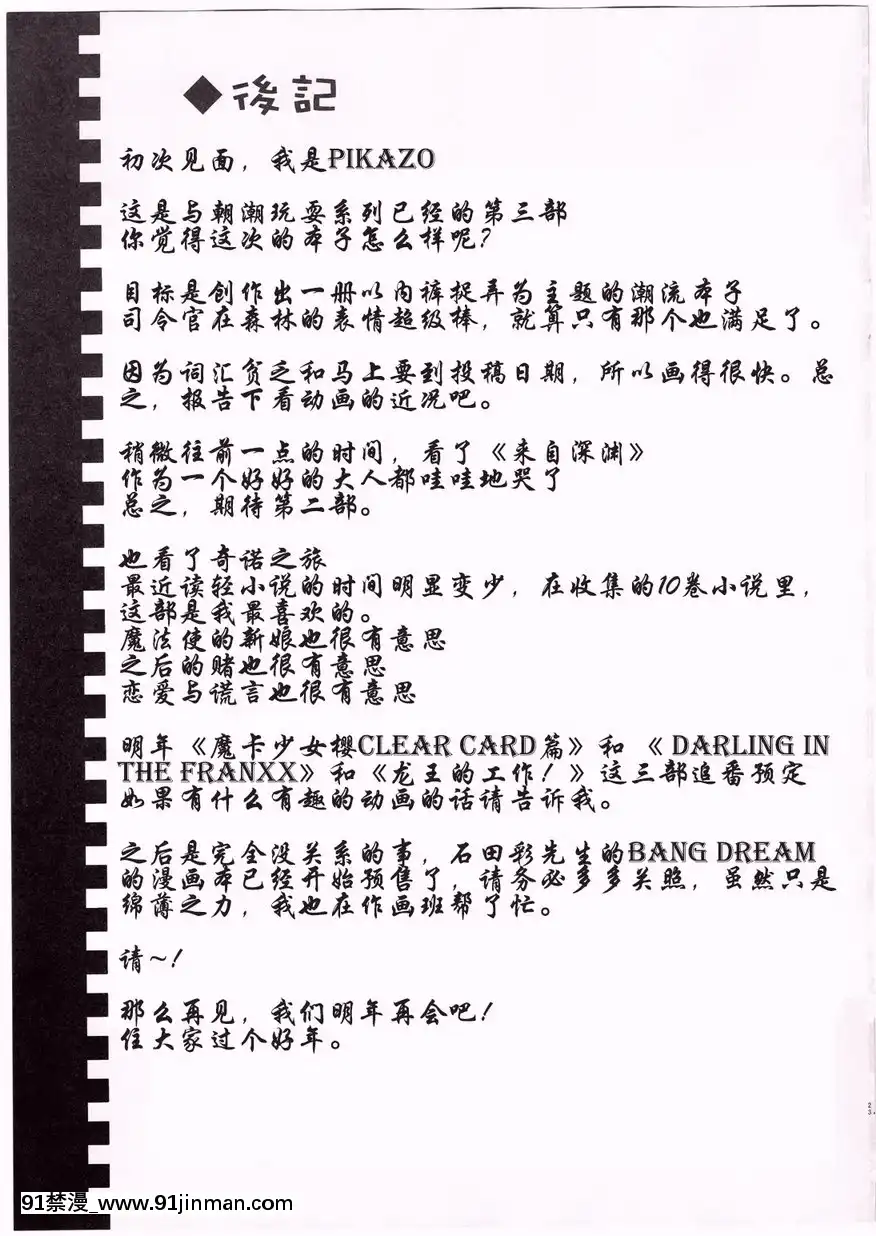 ◆後記
初次见面，我是PIKAZO
这是与朝潮玩耍系列已经的第三部
你觉得这次的本子怎么样呢？
目标是创作出一册以内裤捉弄为主题的潮流本子
司令官在森林的表情超级棒，就算只有那个也满足了。
因为词汇贫乏和马上要到投稿日期，所以画得很快。总
之，报告下看动画的近况吧。
稍微往前一点的时间，看了《来自深渊》
作为一个好好的大人都哇哇地哭了
总之，期待第二部。
也看了奇诺之旅
最近读轻小说的时间明显变少，在收集的10卷小说里，
这部是我最喜欢的。
魔法使的新娘也很有意思
之后的赌也很有意思
恋爱与谎言也很有意思
明年《魔卡少女樱CLEAR CARD篇》和《DARLING IN
THE FRANXX》和《龙王的工作！》这三部追番预定
如果有什么有趣的动画的话请告诉我。
之后是完全没关系的事，石田彩先生的BANG DREAM
的漫画本已经开始预售了，请务必多多关照，虽然只是
绵薄之力，我也在作画班帮了忙。
请～！
那么再见，我们明年再会吧！
住大家过个好年。
23
91禁漫_www.91jinman.com